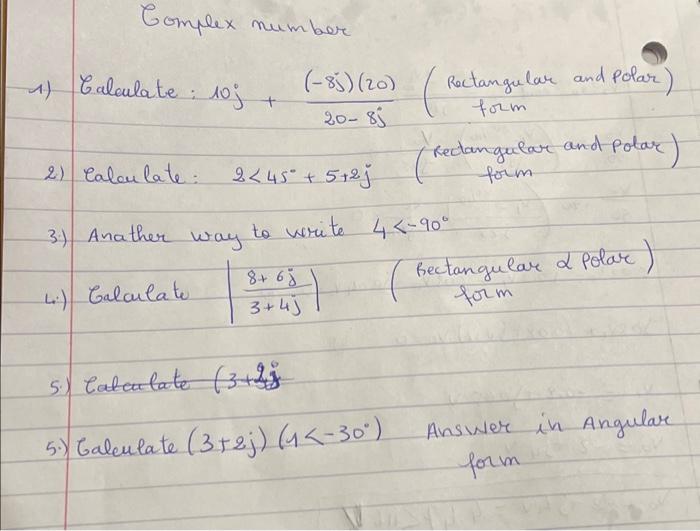 Complex number
1) Calculate : 10j + (-8j)(20) / 20-8j ( Rectangular and Polar ) form
2) Calculate : 2<45° + 5+2j ( Rectangular and Polar ) form
3.) Anather way to write 4<-90°
4.) Calculate | 8+6j / 3+4j | ( Rectangular & Polar ) form
5.) Calculate (3+2j
5.) Calculate (3+2j) (1<-30°) Answer in Angular form